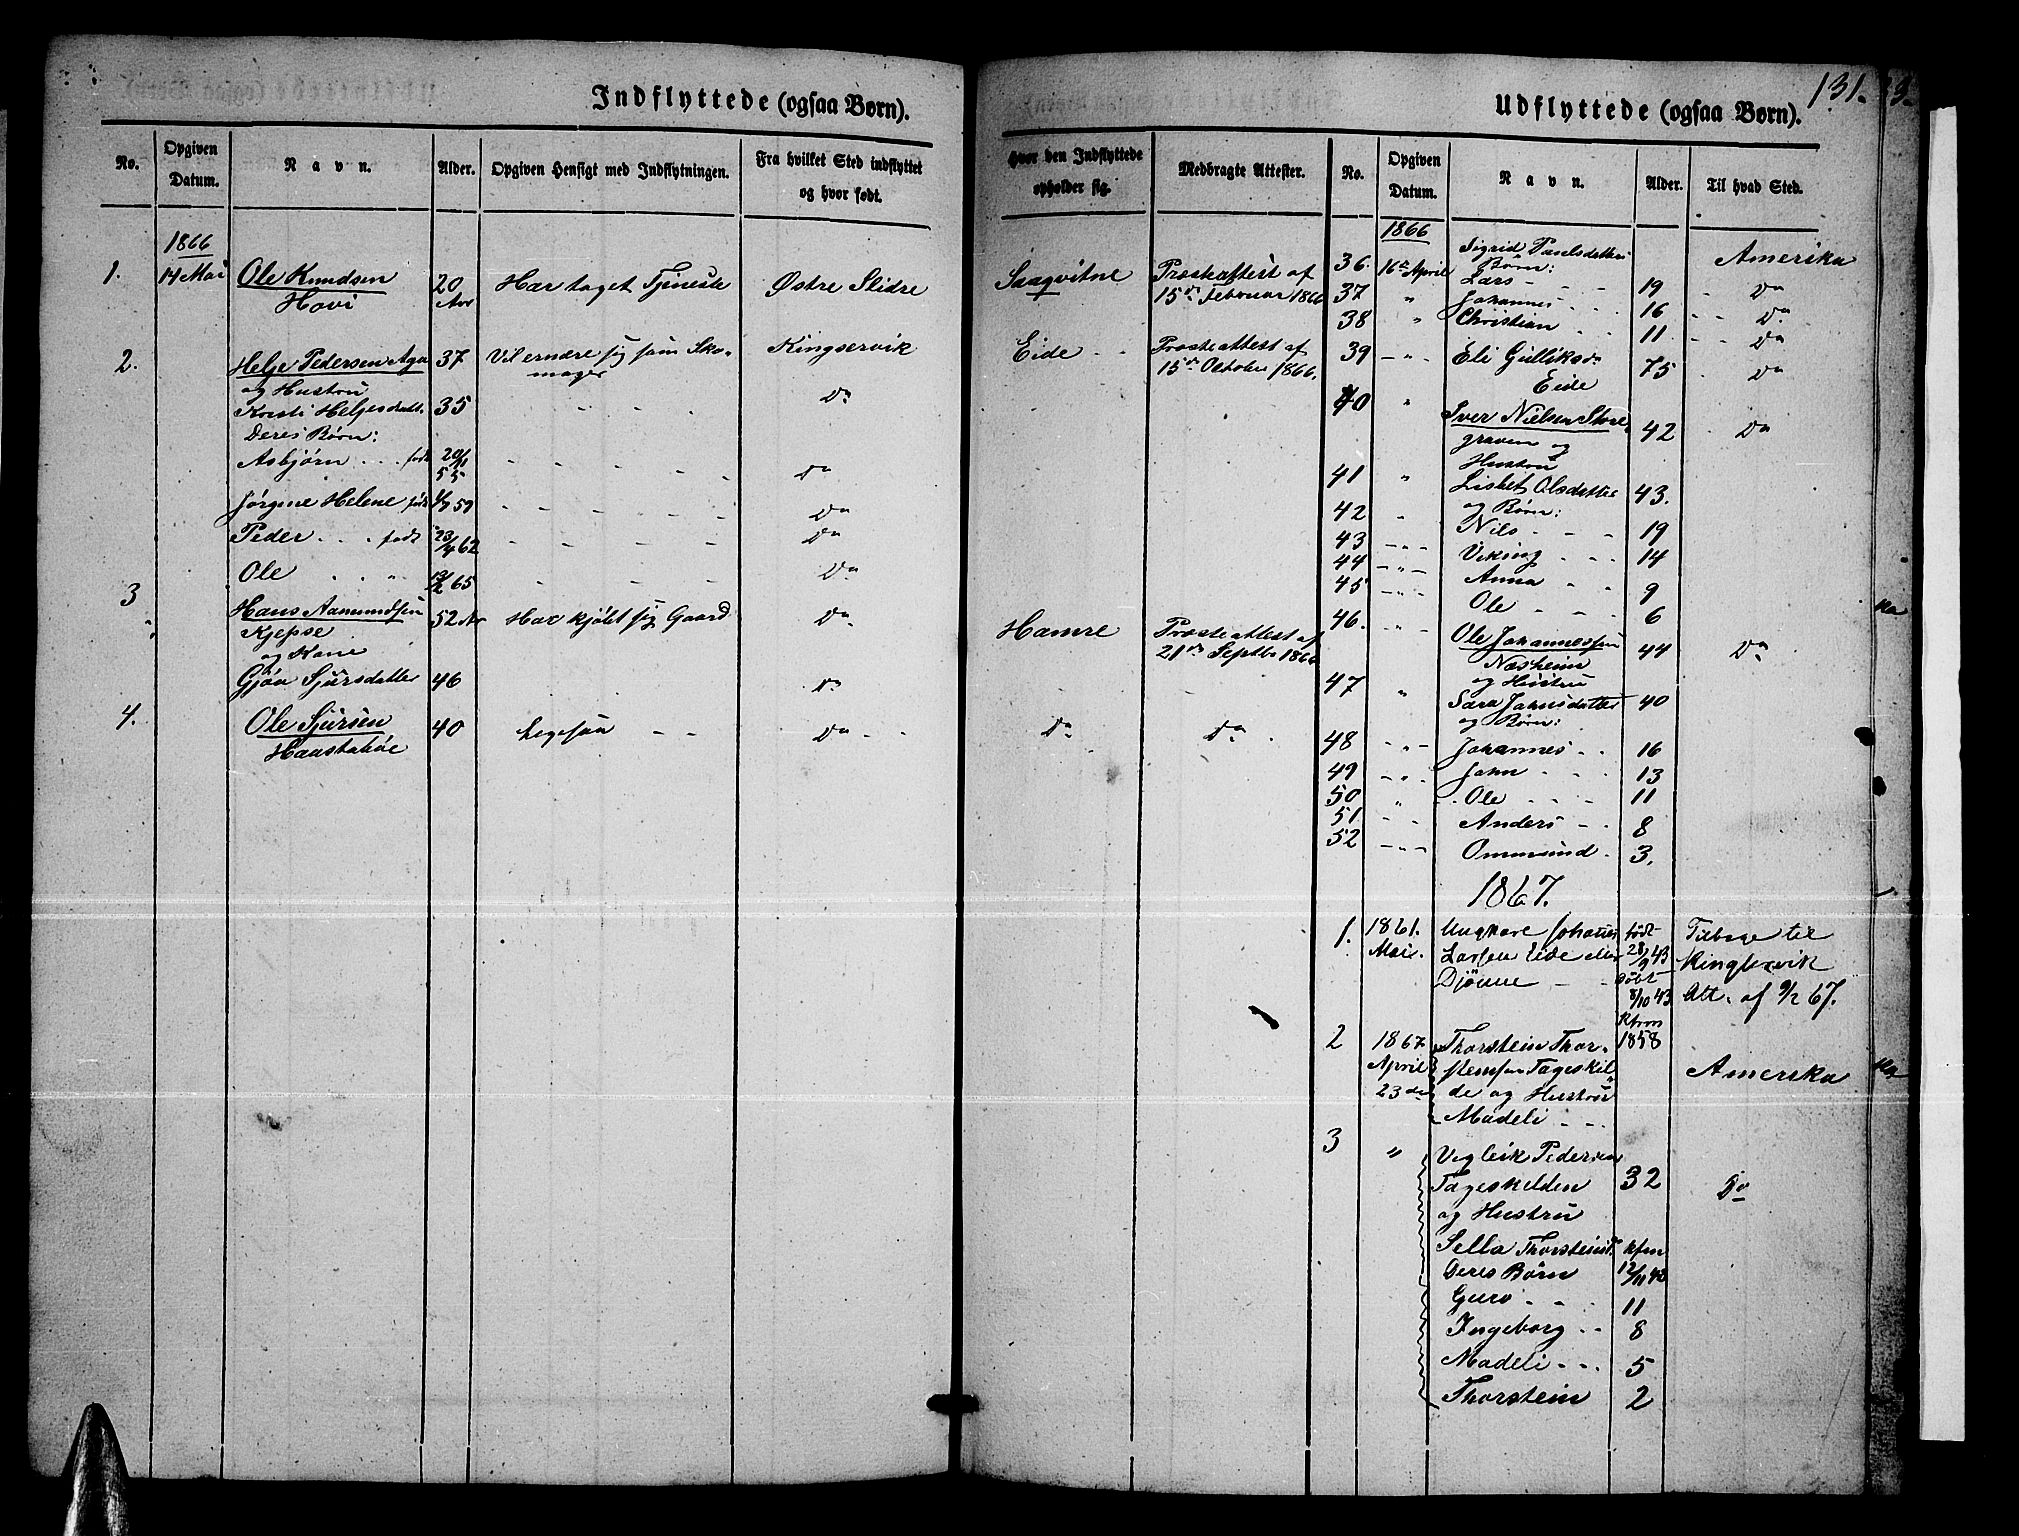 Indflyttede (ogsaa Børn).
No.
Opgiven Datum.
Navn.
Alder.
Opgiven Hensigt med Indflytningen.
Fra hvilket Sted indflyttet og hvor født.
1866
1. 14 Mai Ole Knudsen 20 Har taget Tjeneste Østre Slidre
Hovi Aar
2. Helje Pedersen Aga 37 Vil ernære sig som Sko- Kingservik
og Hustru mager
Kristi Heljesdatt. 35 " " " Do
Deres Børn:
Asbjørn . . . født 20/11 55 - - - - Do
Jørgine Helene født 4/7 59 - - - - Do
Peder . . . født 23/4 62 - - - - Do
Ole . . " 12/2 65 - - - Do
3 Hans Aamundsen 52 Aar Har kjøbt sig Gaard Do
Kjepse
og Kone
Gjøa Sjursdatter 46 Do
4. Ole Sjursen 40 ligesaa - - Do - -
Haastabøe
131.
Udflyttede (ogsaa Børn).
Hvor den Indflyttede opholder sig.
Medbragte Attester.
No.
Opgiven Datum.
Navn.
Alder.
Til hvad Sted.
Saaqvitne Præsteattest af
15de Februar 1866
Eide - - Præsteattest af
15de October 1866.
Hamre Præsteattest af
21de Septbr 1866
Do Do
1866
36. 16de April Sigrid Paulsdatter Amerika
Børn:
37 " Lars - - - 19 - Do
38 " Johannes - - - 16 - - Do
Christian - - 11 - - Do
39 - " - Eli Gulliksdr 75 Do
Eide
40 " Iver Nielsen Store- 42 Do
graven og
Hustru
41 " Lisbet Olsdatter 43.
og Børn:
42 " Nils - - - 19
43 - " - Viking - - 14
44 - " - Anna - - 9
45 - " - Ole - - - 6
46. " Ole Johannessen 44 Do
Næsheim
og Hustru
47 " Sara Johnsdatter 40
og Børn:
48 - " - Johannes - - 16
49 - " - John - - - 13
50 " Ole - - - 11
51 - - Anders - - 8
52 - " - Ommund - 3.
1867.
1. 1861. Ungkarl Johannes født Tilbage til
Mai. Larsen Eide eller 28/9 43 Kingservik
Djønne - - døbt 8/10 43 Att. af 9/2 67.
Kfrm 1858
2 1867 Thorstein Thor-
April stensen Tageskil- Amerika
23de de og Hustru
Madeli - - -
3 " Vigleik Pedersen
Tageskelden 32 Do
og Hustru
Sella Thorsteinsd. Kfrm
Deres Børn 12/11 48
Guro - - - 11
Ingeborg - - 8
Madeli - - - 5
Thorstein 2